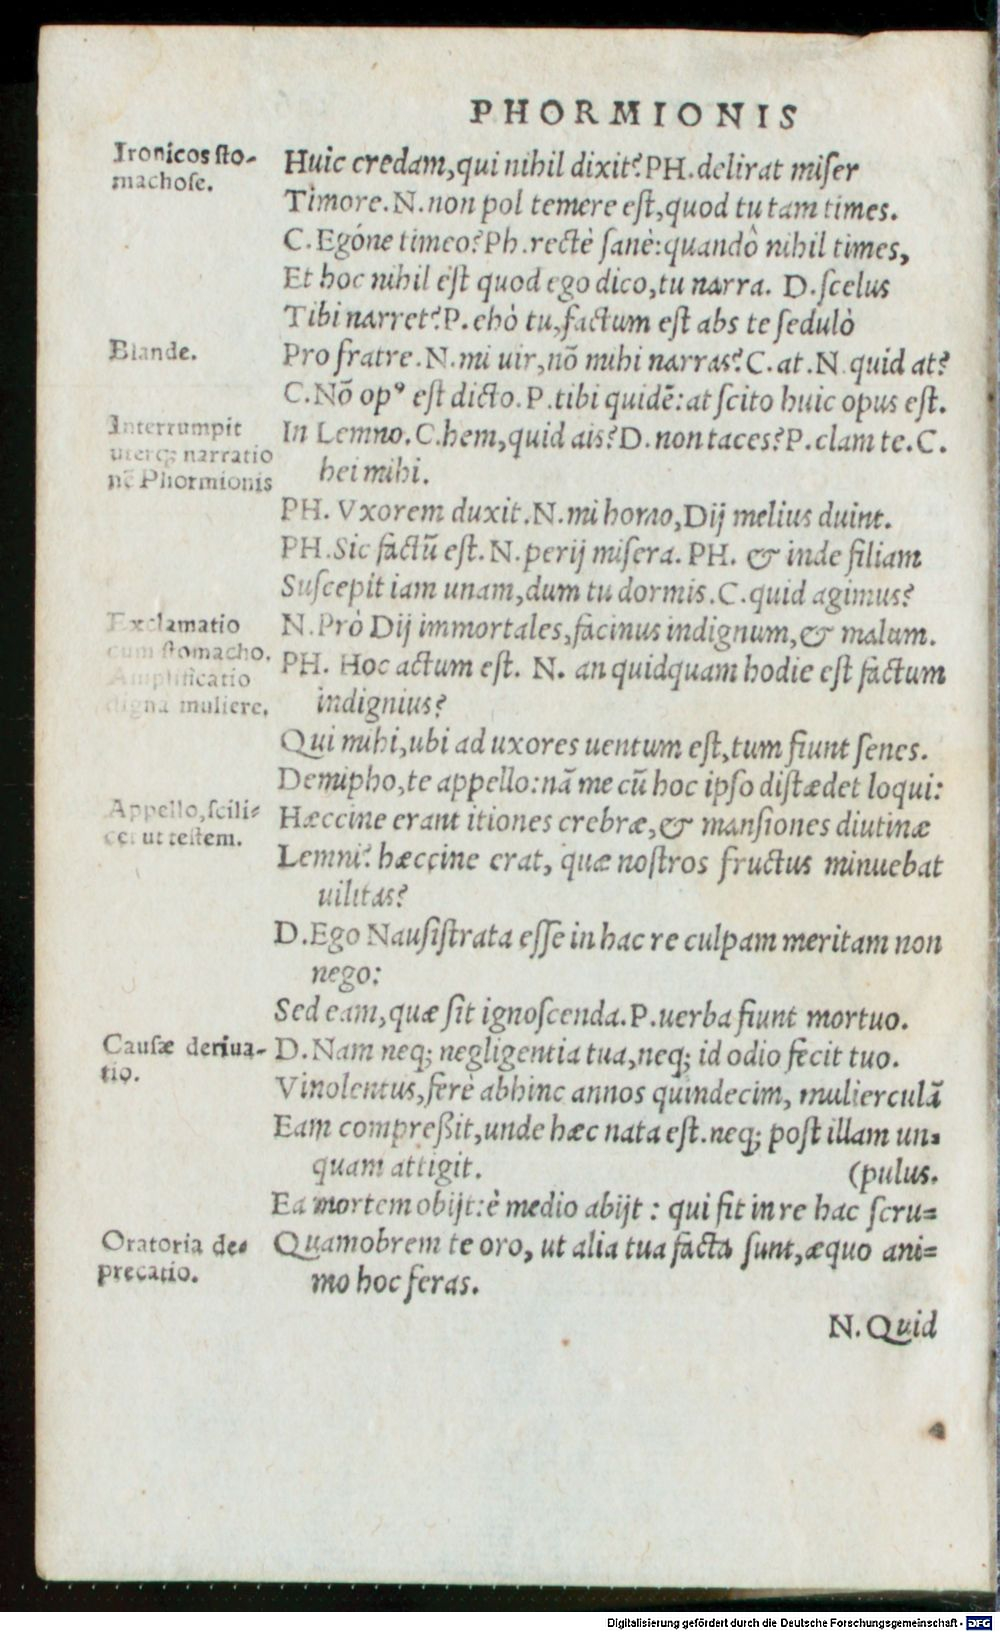 PHORMIONIS
Ironicos sto-
machose.
Huic credam, qui nihil dixit? PH. delirat miser
Timore. N. non pol temere est, quod tu tam times.
C. Egóne timeo? Ph. rectè sanè: quandô nihil times,
Et hoc nihil est quod ego dico, tu narra. D. scelus
Tibi narret? P. ehò tu, factum est abs te sedulò
Blande.
Pro fratre. N. mi uir, nõ mihi narras? C. at. N. quid at?
C. Nõ opꝰ est dicto. P. tibi quidẽ: at scito huic opus est.
Interrumpit
uterq; narratio
nẽ Phormionis
In Lemno. C. hem, quid ais? D. non taces? P. clam te. C.
hei mihi.
PH. Vxorem duxit. N. mi homo, Dij melius duint.
PH. Sic factũ est. N. perij misera. PH. & inde filiam
Suscepit iam unam, dum tu dormis. C. quid agimus?
Exclamatio
cum stomacho.
Amplificatio
digna muliere.
N. Prò Dij immortales, facinus indignum, & malum.
PH. Hoc actum est. N. an quidquam hodie est factum
indignius?
Qui mihi, ubi ad uxores uentum est, tum fiunt senes.
Demipho, te appello: nã me cũ hoc ipso distædet loqui:
Appello, scili-
cet ut testem.
Hæccine erant itiones crebræ, & mansiones diutinæ
Lemni? hæccine erat, quæ nostros fructus minuebat
uilitas?
D. Ego Nausistrata esse in hac re culpam meritam non
nego:
Sed eam, quæ sit ignoscenda. P. uerba fiunt mortuo.
Causæ deriua-
tio.
D. Nam neq; negligentia tua, neq; id odio fecit tuo.
Vinolentus, ferè abhinc annos quindecim, mulierculã
Eam compreßit, unde hæc nata est. neq; post illam un-
quam attigit. (pulus.
Ea mortem obijt: è medio abijt : qui fit in re hac scru-
Oratoria de-
precatio.
Quamobrem te oro, ut alia tua facta sunt, æquo ani-
mo hoc feras.
N. Quid
Digitalisierung gefördert durch die Deutsche Forschungsgemeinschaft - DFG